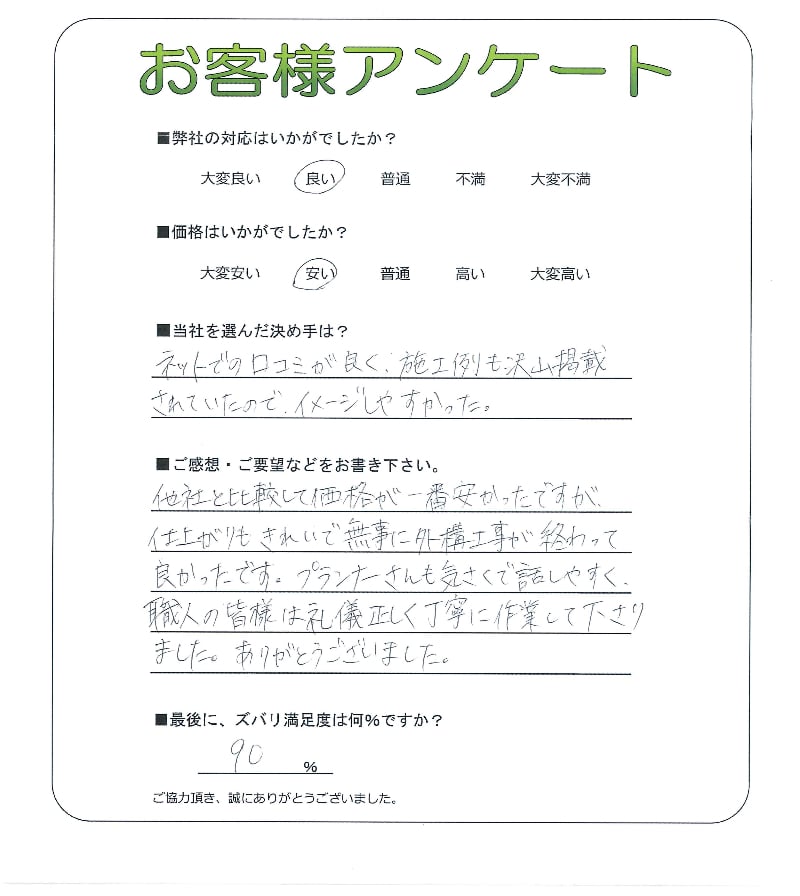 お客様アンケート
■弊社の対応はいかがでしたか？
大変良い 良い 普通 不満 大変不満
■価格はいかがでしたか？
大変安い 安い 普通 高い 大変高い
■当社を選んだ決め手は？
ネットでの口コミが良く、施工例も沢山掲載
されていたので、イメージしやすかった。
■ご感想・ご要望などをお書き下さい。
他社と比較して価格が一番安かったですが、
仕上がりもきれいで無事に外構工事が終わって
良かったです。プランナーさんも気さくで話しやすく、
職人の皆様は礼儀正しく丁寧に作業して下さり
ました。ありがとうございました。
■最後に、ズバリ満足度は何%ですか？
90 %
ご協力頂き、誠にありがとうございました。